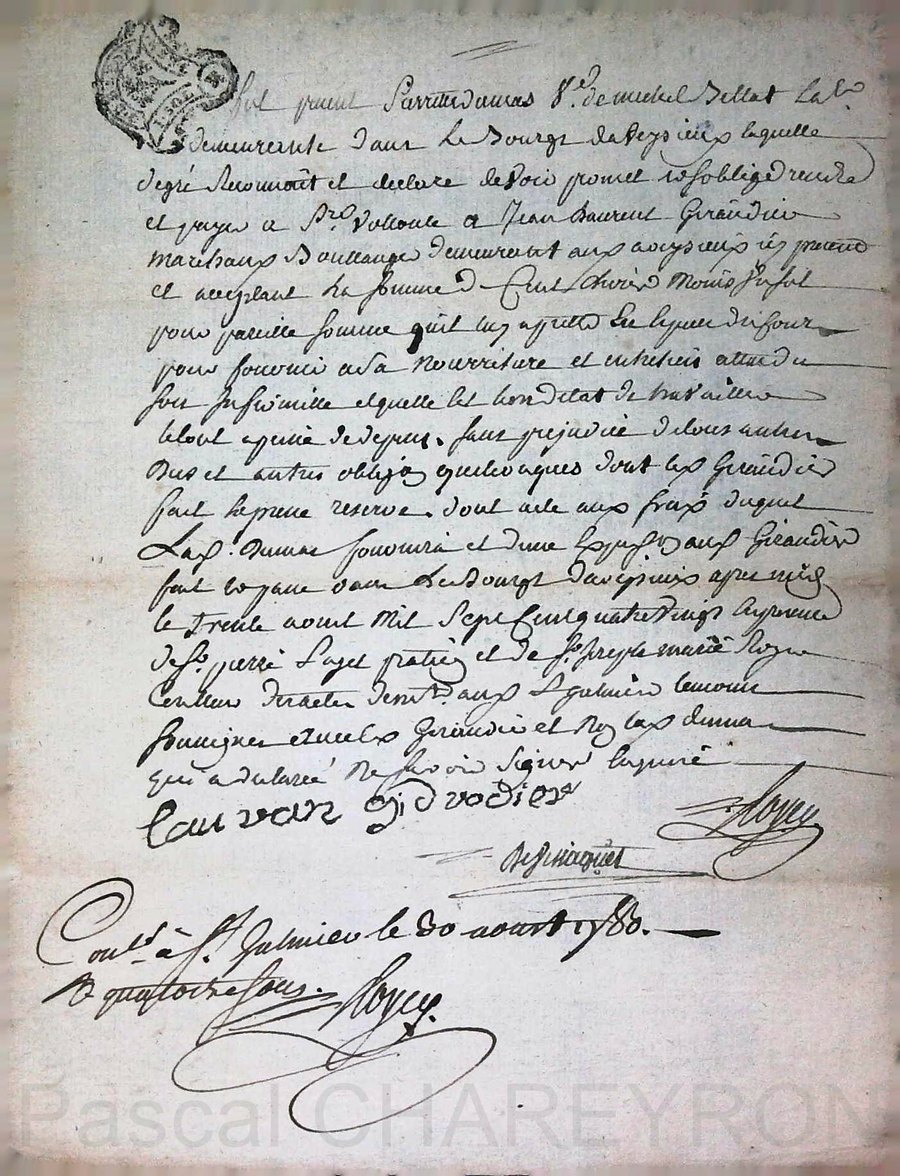 fut présent Pierrette dumas V.e de michel Bellat La.r
demeurante dans Le Bourg de Veysieux laquelle
degré Reconnoit et declare devoir promet et soblige rendre
et payer a Volonté a Jean Laurent Giraudier
marchand Boullanger demeurant aux
et acceptant La somme de Cent Livres Moins Un sol
pour pareille somme quil luy a prette
pour fournir a Sa Nourriture et entretien attendu
son Infirmitté et quelle est hors detat de travailler
letout apeine de depens. sans prejudice de tous autres
Dus et autres obligõn quelconques dont led Giraudier
fait Expresse reserve. dont acte aux fraix duquel
Lad. Dumas fournira et dune Expeditõn aud Giraudier
fait et passé dans Le Bourg apres midy
le trente aoust Mil Sept Cent quatre Vingt En presence
de S.r pierre praticien et de S.r Joseph marie Royer
des actes dem.t aud S.t Galmier temoins
soussignes avec led Giraudier et Non lad dumas
qui a declaré Ne Savoir Signer Enquise
lauran gidrodier
Royer
Cont.lé à S.t Galmier le 30 aoust 1780.
R quatorze sous. Royer.
Pascal CHAREYRON